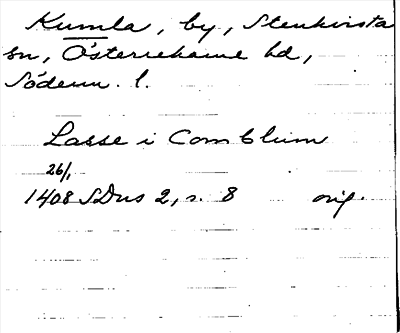 Kumla, by, Stenkvista
sn, Österrekarne hd,
Söderm. l.
Lasse i Comblum
26/1
1408 SDns 2, s. 8 orig.